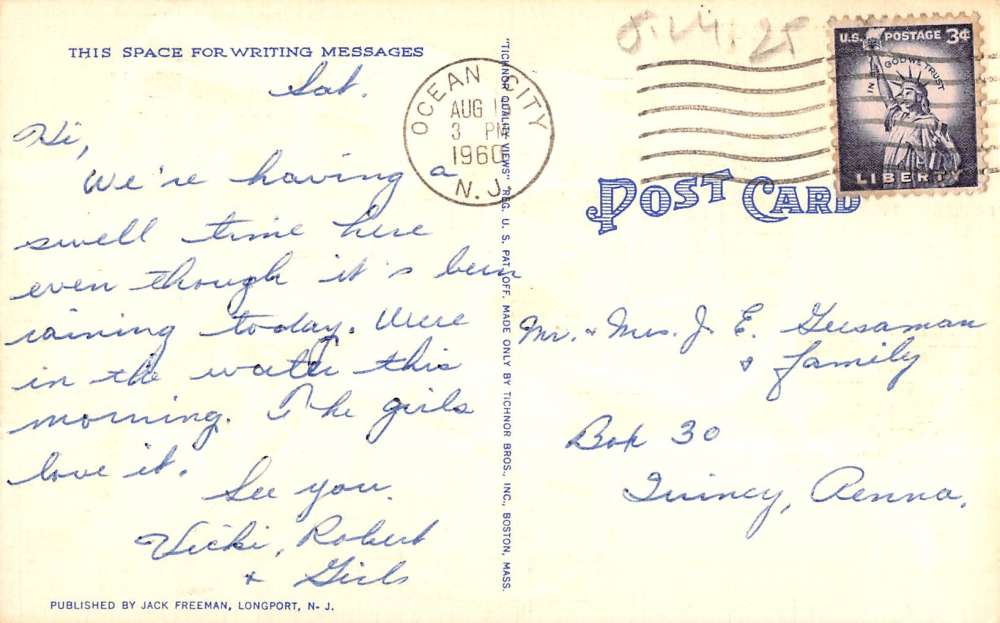 THIS SPACE FOR WRITING MESSAGES
Sat.
Hi,
We're having a
swell time here
even though it's been
raining today. Were
in the water this
morning. The girls
love it.
See you.
Vicki, Robert
+ Girls
PUBLISHED BY JACK FREEMAN, LONGPORT, N. J.
OCEAN CITY
AUG
3 PM
1960
N. J.
"TICHNOR QUALITY VIEWS" REG. U. S. PAT. OFF. MADE ONLY BY TICHNOR BROS., INC., BOSTON, MASS.
U.S. POSTAGE 3¢
IN GOD WE TRUST
LIBERTY
POST CARD
Mr. + Mrs. J. E. Geesaman
+ family
Box 30
Quincy, Penna.